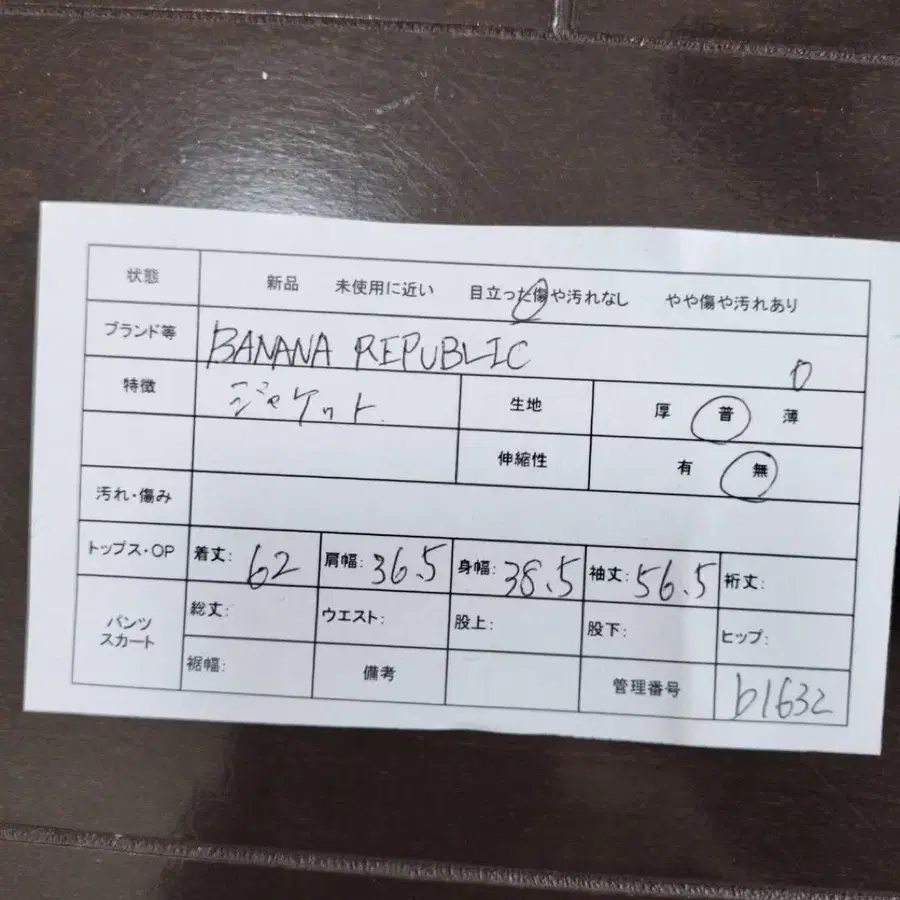 状態 新品 未使用に近い 目立った傷や汚れなし やや傷や汚れあり
ブランド等 BANANA REPUBLIC 0
特徴 ジャケット. 生地 厚 普 薄
伸縮性 有 無
汚れ・傷み
トップス・OP 着丈: 62 肩幅: 36.5 身幅: 38.5 袖丈: 56.5 裄丈:
パンツ スカート 総丈: ウエスト: 股上: 股下: ヒップ:
裾幅: 備考 管理番号 b1632